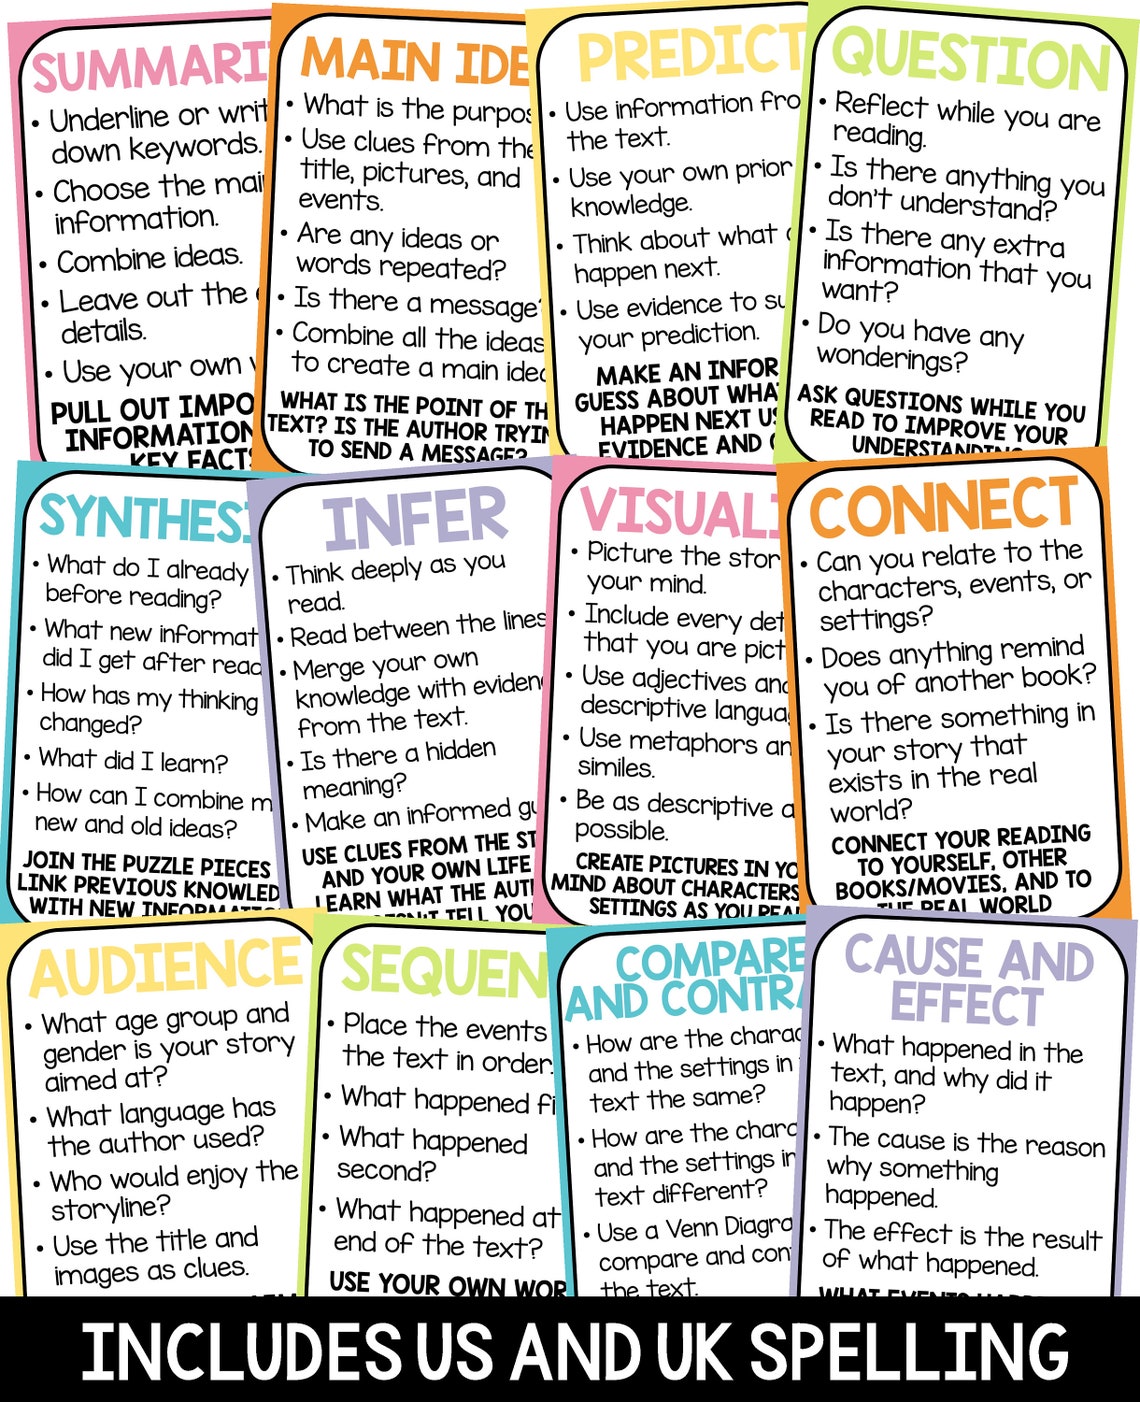 SUMMARI
• Underline or writ
down keywords.
• Choose the mai
information.
• Combine ideas.
• Leave out the
details.
• Use your own
PULL OUT IMPO
INFORMATION
KEY FACTS
MAIN IDE
• What is the purpos
• Use clues from the
title, pictures, and
events.
• Are any ideas or
words repeated?
• Is there a message?
• Combine all the ideas
to create a main idea
WHAT IS THE POINT OF TH
TEXT? IS THE AUTHOR TRYIN
TO SEND A MESSAGE?
PREDICT
• Use information fro
the text.
• Use your own prior
knowledge.
• Think about what
happen next.
• Use evidence to su
your prediction.
MAKE AN INFOR
GUESS ABOUT WHA
HAPPEN NEXT US
EVIDENCE AND
QUESTION
• Reflect while you are
reading.
• Is there anything you
don't understand?
• Is there any extra
information that you
want?
• Do you have any
wonderings?
ASK QUESTIONS WHILE YOU
READ TO IMPROVE YOUR
UNDERSTANDING
SYNTHESI
• What do I already
before reading?
• What new informat
did I get after read
• How has my thinking
changed?
• What did I learn?
• How can I combine m
new and old ideas?
JOIN THE PUZZLE PIECES
LINK PREVIOUS KNOWLED
WITH NEW INFORMATIO
INFER
• Think deeply as you
read.
• Read between the lines
• Merge your own
knowledge with eviden
from the text.
• Is there a hidden
meaning?
• Make an informed gu
USE CLUES FROM THE ST
AND YOUR OWN LIFE
LEARN WHAT THE AUT
TELL YOU
VISUALI
• Picture the stor
your mind.
• Include every det
that you are pict
• Use adjectives and
descriptive languag
• Use metaphors an
similes.
• Be as descriptive a
possible.
CREATE PICTURES IN YO
MIND ABOUT CHARACTERS
SETTINGS AS YOU REA
CONNECT
• Can you relate to the
characters, events, or
settings?
• Does anything remind
you of another book?
• Is there something in
your story that
exists in the real
world?
CONNECT YOUR READING
TO YOURSELF, OTHER
BOOKS/MOVIES, AND TO
THE REAL WORLD
AUDIENCE
• What age group and
gender is your story
aimed at?
• What language has
the author used?
• Who would enjoy the
storyline?
• Use the title and
images as clues.
SEQUEN
• Place the events
the text in order.
• What happened fi
• What happened
second?
• What happened at
end of the text?
USE YOUR OWN WOR
COMPARE
AND CONTRA
• How are the charac
and the settings in
text the same?
• How are the chara
and the settings in
text different?
• Use a Venn Diagra
compare and con
the text.
CAUSE AND
EFFECT
• What happened in the
text, and why did it
happen?
• The cause is the reason
why something
happened.
• The effect is the result
of what happened.
WHAT EVENTS
INCLUDES US AND UK SPELLING